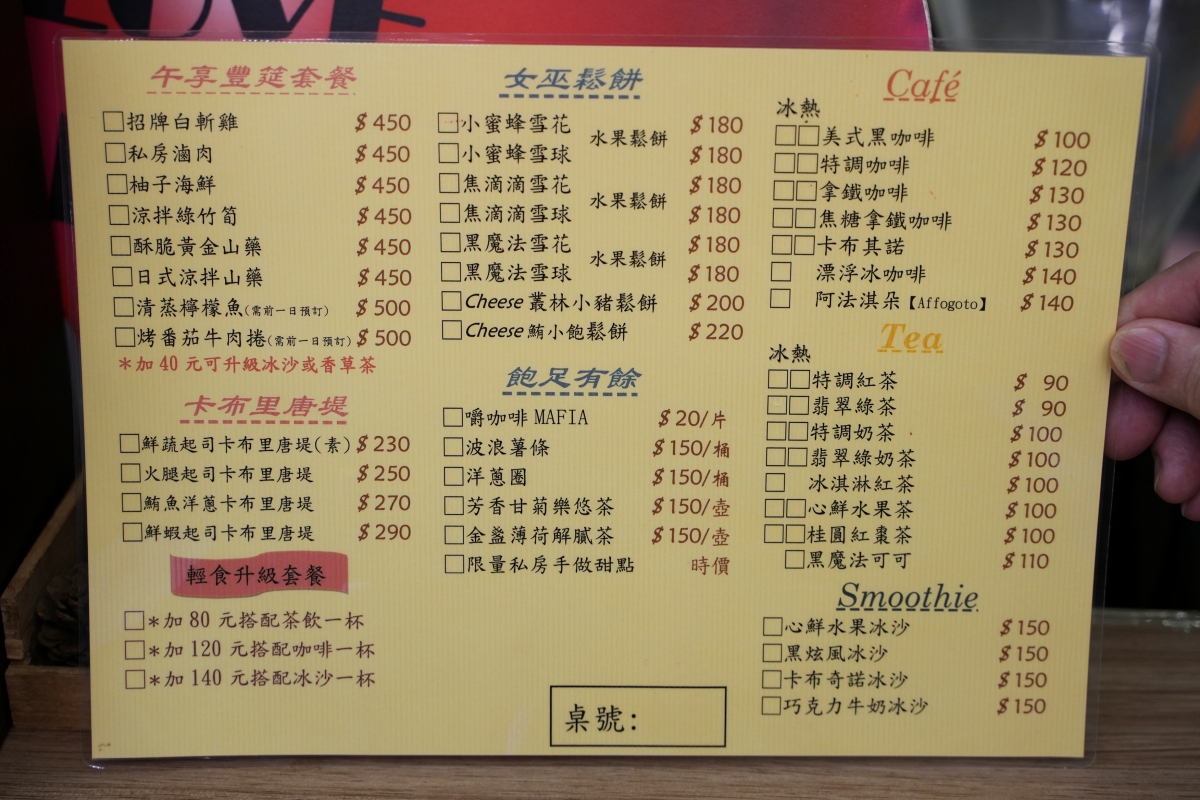 午享豐筵套餐
□招牌白斬雞 $450
□私房滷肉 $450
□柚子海鮮 $450
□涼拌綠竹筍 $450
□酥脆黃金山藥 $450
□日式涼拌山藥 $450
□清蒸檸檬魚(需前一日預訂) $500
□烤番茄牛肉捲(需前一日預訂) $500
*加 40 元可升級冰沙或香草茶
卡布里唐堤
□鮮蔬起司卡布里唐堤(素) $230
□火腿起司卡布里唐堤 $250
□鮪魚洋蔥卡布里唐堤 $270
□鮮蝦起司卡布里唐堤 $290
輕食升級套餐
□*加 80 元搭配茶飲一杯
□*加 120 元搭配咖啡一杯
□*加 140 元搭配冰沙一杯
女巫鬆餅
□小蜜蜂雪花 $180
水果鬆餅
□小蜜蜂雪球 $180
□焦滴滴雪花 $180
水果鬆餅
□焦滴滴雪球 $180
□黑魔法雪花 $180
水果鬆餅
□黑魔法雪球 $180
□Cheese 叢林小豬鬆餅 $200
□Cheese 鮪小飽鬆餅 $220
飽足有餘
□嚼咖啡 MAFIA $20/片
□波浪薯條 $150/桶
□洋蔥圈 $150/桶
□芳香甘菊樂悠茶 $150/壺
□金盞薄荷解膩茶 $150/壺
□限量私房手做甜點 時價
桌號:
Café
冰熱
□□美式黑咖啡 $100
□□特調咖啡 $120
□□拿鐵咖啡 $130
□□焦糖拿鐵咖啡 $130
□□卡布其諾 $130
□ 漂浮冰咖啡 $140
□ 阿法淇朵【Affogoto】 $140
Tea
冰熱
□□特調紅茶 $ 90
□□翡翠綠茶 $ 90
□□特調奶茶 $100
□□翡翠綠奶茶 $100
□ 冰淇淋紅茶 $100
□□心鮮水果茶 $100
□□桂圓紅棗茶 $100
□黑魔法可可 $110
Smoothie
□心鮮水果冰沙 $150
□黑炫風冰沙 $150
□卡布奇諾冰沙 $150
□巧克力牛奶冰沙 $150